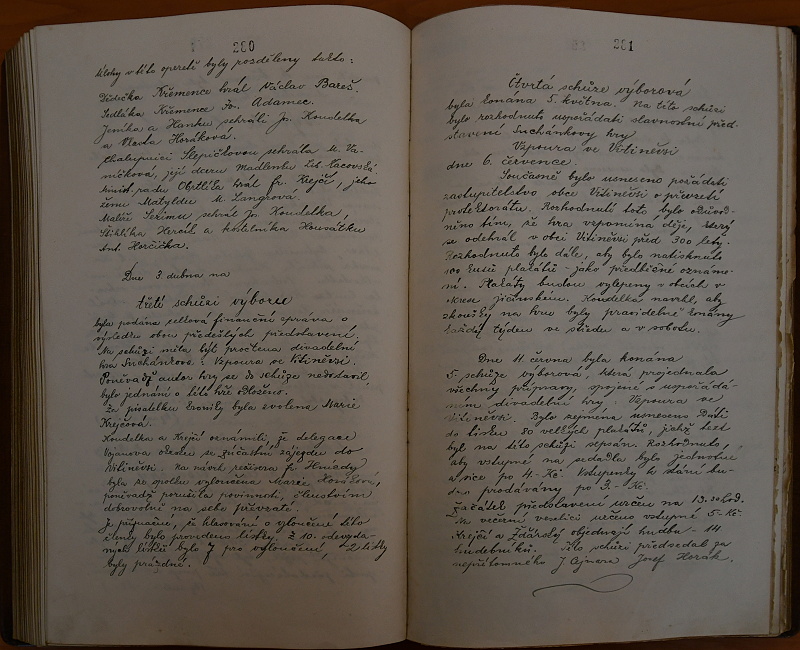 280
Úlohy v této operetě byly rozděleny takto:
Dědečka Křemence hrál Václav Bareš.
Sedláka Křemence Jos. Adamec.
Jeníka a Hanku sehráli Jos. Koudelka
a Vlasta Horáková.
chalupnici Slepičkovou sehrála M. Va-
níčková, její dceru Madlenku Lib. Cacovská
minist. radu Obrtlíka hrál fr. Krejčí, jeho
ženu Matyldu M. Langrová.
Malíře Sežimu sehrál Jos. Koudelka,
Stihlíka Herál a kostelníka Housátku
Ant. Horčička.
Dne 3. dubna na
třetí schůzi výboru
byla podána celková finanční zpráva o
výsledku obou předešlých představení.
Na schůzi měla být pročtena divadelní
hra Suchánkova: Vzpoura ve Vitiněvsi.
Poněvadž autor hry se do schůze nedostavil,
bylo jednání o této hře odloženo.
Za pisatelku kroniky byla zvolena Marie
Krejčová.
Koudelka a Krejčí oznámili, že delegace
Vojanova okrsku se zúčastní zájezdu do
Vitiněvsi. Na návrh režiséra fr. Hnïady
byla ze spolku vyloučena Marie Horáková,
poněvadž porušila povinnosti, členstvím
dobrovolně na sebe převzaté.
Je připsáno, že hlasování o vyloučení této
členky bylo provedeno lístky. Z 10. odevzda-
ných lístků bylo 7 pro vyloučení, 2 lístky
byly prázdné.
281
Čtvrtá schůze výborová
byla konána 5. května. Na této schůzi
bylo rozhodnuto uspořádati slavnostní před-
stavení Suchánkovy hry
Vzpoura ve Vitiněvsi
dne 6. července.
Současně bylo usneseno požádati
zastupitelstvo obce Vitiněvsi o převzetí
protektorátu. Rozhodnutí toto bylo odůvod-
něno tím, že hra vzpomíná děje, který
se odehrál v obci Vitiněvsi před 300 lety.
Rozhodnuto bylo dále, aby bylo natisknuto
100 kusů plakátů - jako předběžné oznáme-
ní. Plakáty budou vylepeny v obcích v
okrese jičínském. Koudelka navrhl, aby
zkoušky na hru byly pravidelně konány
každý týden ve středu a v sobotu.
Dne 11. června byla konána
5. schůze výborová, která projednala
všechny přípravy, spojené s uspořádá-
ním divadelní hry: Vzpoura ve
Vitiněvsi. Bylo zejména usneseno dáti
do tisku 80 velkých plakátů, jichž text
byl na této schůzi sepsán. Rozhodnuto,
aby vstupné na sedadla bylo jednotné
a sice po 4.- Kč. Vstupenky k stání bu-
dou prodávány po 3.- Kč.
Začátek představení určen na 13.30 hod.
Na večerní veselici určeno vstupné 5.- Kč.
Krejčí a Žďárský objednají hudbu - 14
hudebníků. Této schůzi předsedal za
nepřítomného J. Cejnara Josef Horák.